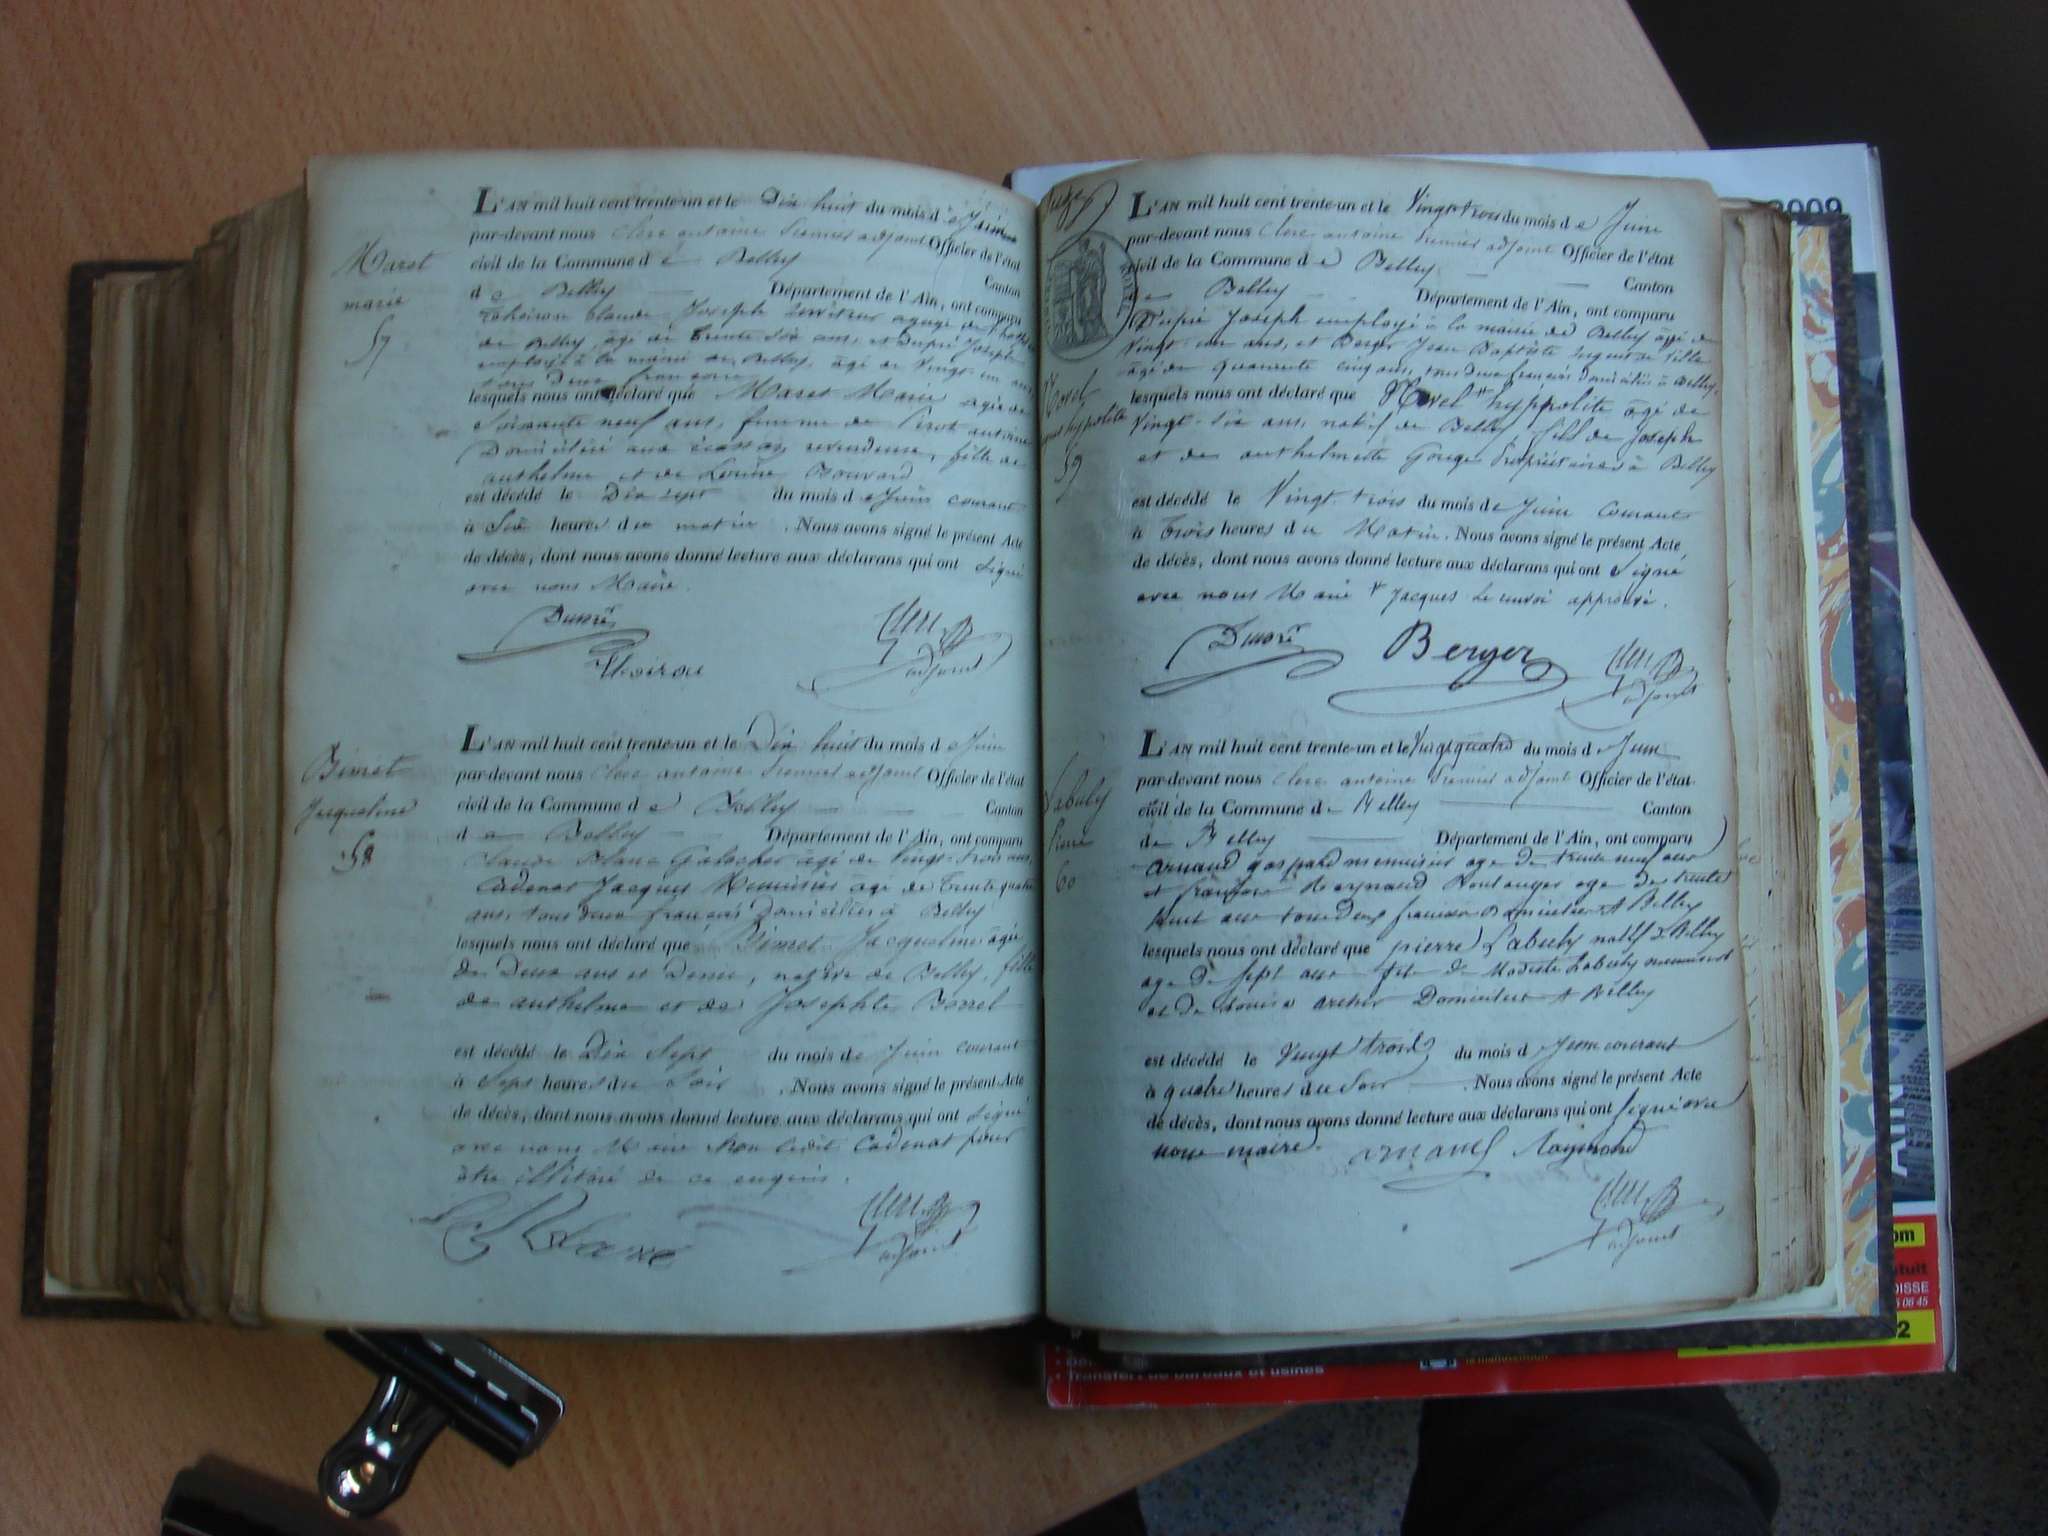 Maret
marie
57
L'AN mil huit cent trente-un et le Dix huit du mois de Juin
par-devant nous Clerc antoine premier adjoint Officier de l'état
civil de la Commune de Belley
Canton
de Belley Département de l'Ain, ont comparu
claude Joseph âgé de
de Belley, âgé de trente six ans, et Dupré Joseph
employé à la mairie de Belley, âgé de Vingt un ans
tous deux français
lesquels nous ont déclaré que Maret Marie agée de
Soixante neuf ans, femme de Pirot antoine
Domiciliée aux écassas, revendeuse, fille de
anthelme et de Louise Bouvard
est décédé le Dix sept du mois de Juin courant
à Six heures du matin . Nous avons signé le présent Acte
de décès, dont nous avons donné lecture aux déclarans qui ont signé
avec nous Maire.
Dupré
Clerc
adjoint
Bimet
Jacqueline
58
L'AN mil huit cent trente-un et le Dix huit du mois de Juin
par-devant nous Clerc antoine premier adjoint Officier de l'état
civil de la Commune de Belley Canton
de Belley Département de l'Ain, ont comparu
Claude Blanc âgé de Vingt-trois ans,
Cadenat Jacques Menuisier âgé de Trente quatre
ans, tous deux français Domiciliés à Belley
lesquels nous ont déclaré que Bimet Jacqueline âgée
de Deux ans et Demi, native de Belley, fille
de anthelme et de Josephte Borrel
est décédé le Dix Sept du mois de Juin courant
à Sept heures du Soir . Nous avons signé le présent Acte
de décès, dont nous avons donné lecture aux déclarans qui ont signé
avec nous Maire Non ledit Cadenat pour
être illitéré de ce enquis.
Clerc
adjoint
L'AN mil huit cent trente-un et le Vingt trois du mois de Juin
par-devant nous Clerc antoine premier adjoint Officier de l'état
civil de la Commune de Belley
Canton
de Belley Département de l'Ain, ont comparu
Dupré Joseph employé à la mairie de Belley âgé de
Vingt-un ans, et Berger Jean Baptiste Sergent de Ville
âgé de quarante cinq ans, tous deux français Domiciliés à Belley.
Morel
hypolite
59
lesquels nous ont déclaré que Morel hyppolite âgé de
Vingt-six ans, natif de Belley fils de Joseph
et de anthelmette Gouge Propriétaires à Belley
est décédé le Vingt-trois du mois de Juin Courant
à Trois heures du Matin. Nous avons signé le présent Acte
de décès, dont nous avons donné lecture aux déclarans qui ont Signé
avec nous Maire Jacques Le renvoi approuvé.
Dupré
Berger
Clerc
adjoint
Labuly
Pierre
60
L'AN mil huit cent trente-un et le Vingt quatre du mois de Juin
par-devant nous Clerc antoine Premier adjoint Officier de l'état
civil de la Commune de Belley
Canton
de Belley Département de l'Ain, ont comparu
arnaud gaspard menuisier age de trente neuf ans
et françois Raymond Boulanger age de trente
huit ans tous deux français Domiciliés A Belley
lesquels nous ont déclaré que pierre Labuly natif de Belley
age de sept ans fils de Modeste Labuly menuisier
et de Louise Domiciliés A Belley
est décédé le Vingt trois du mois de Juin courant
à quatre heures du Soir . Nous avons signé le présent Acte
de décès, dont nous avons donné lecture aux déclarans qui ont signé avec
nous maire.
arnaud Raymond
Clerc
adjoint
2009
AIN
Transfert de bureaux et usines